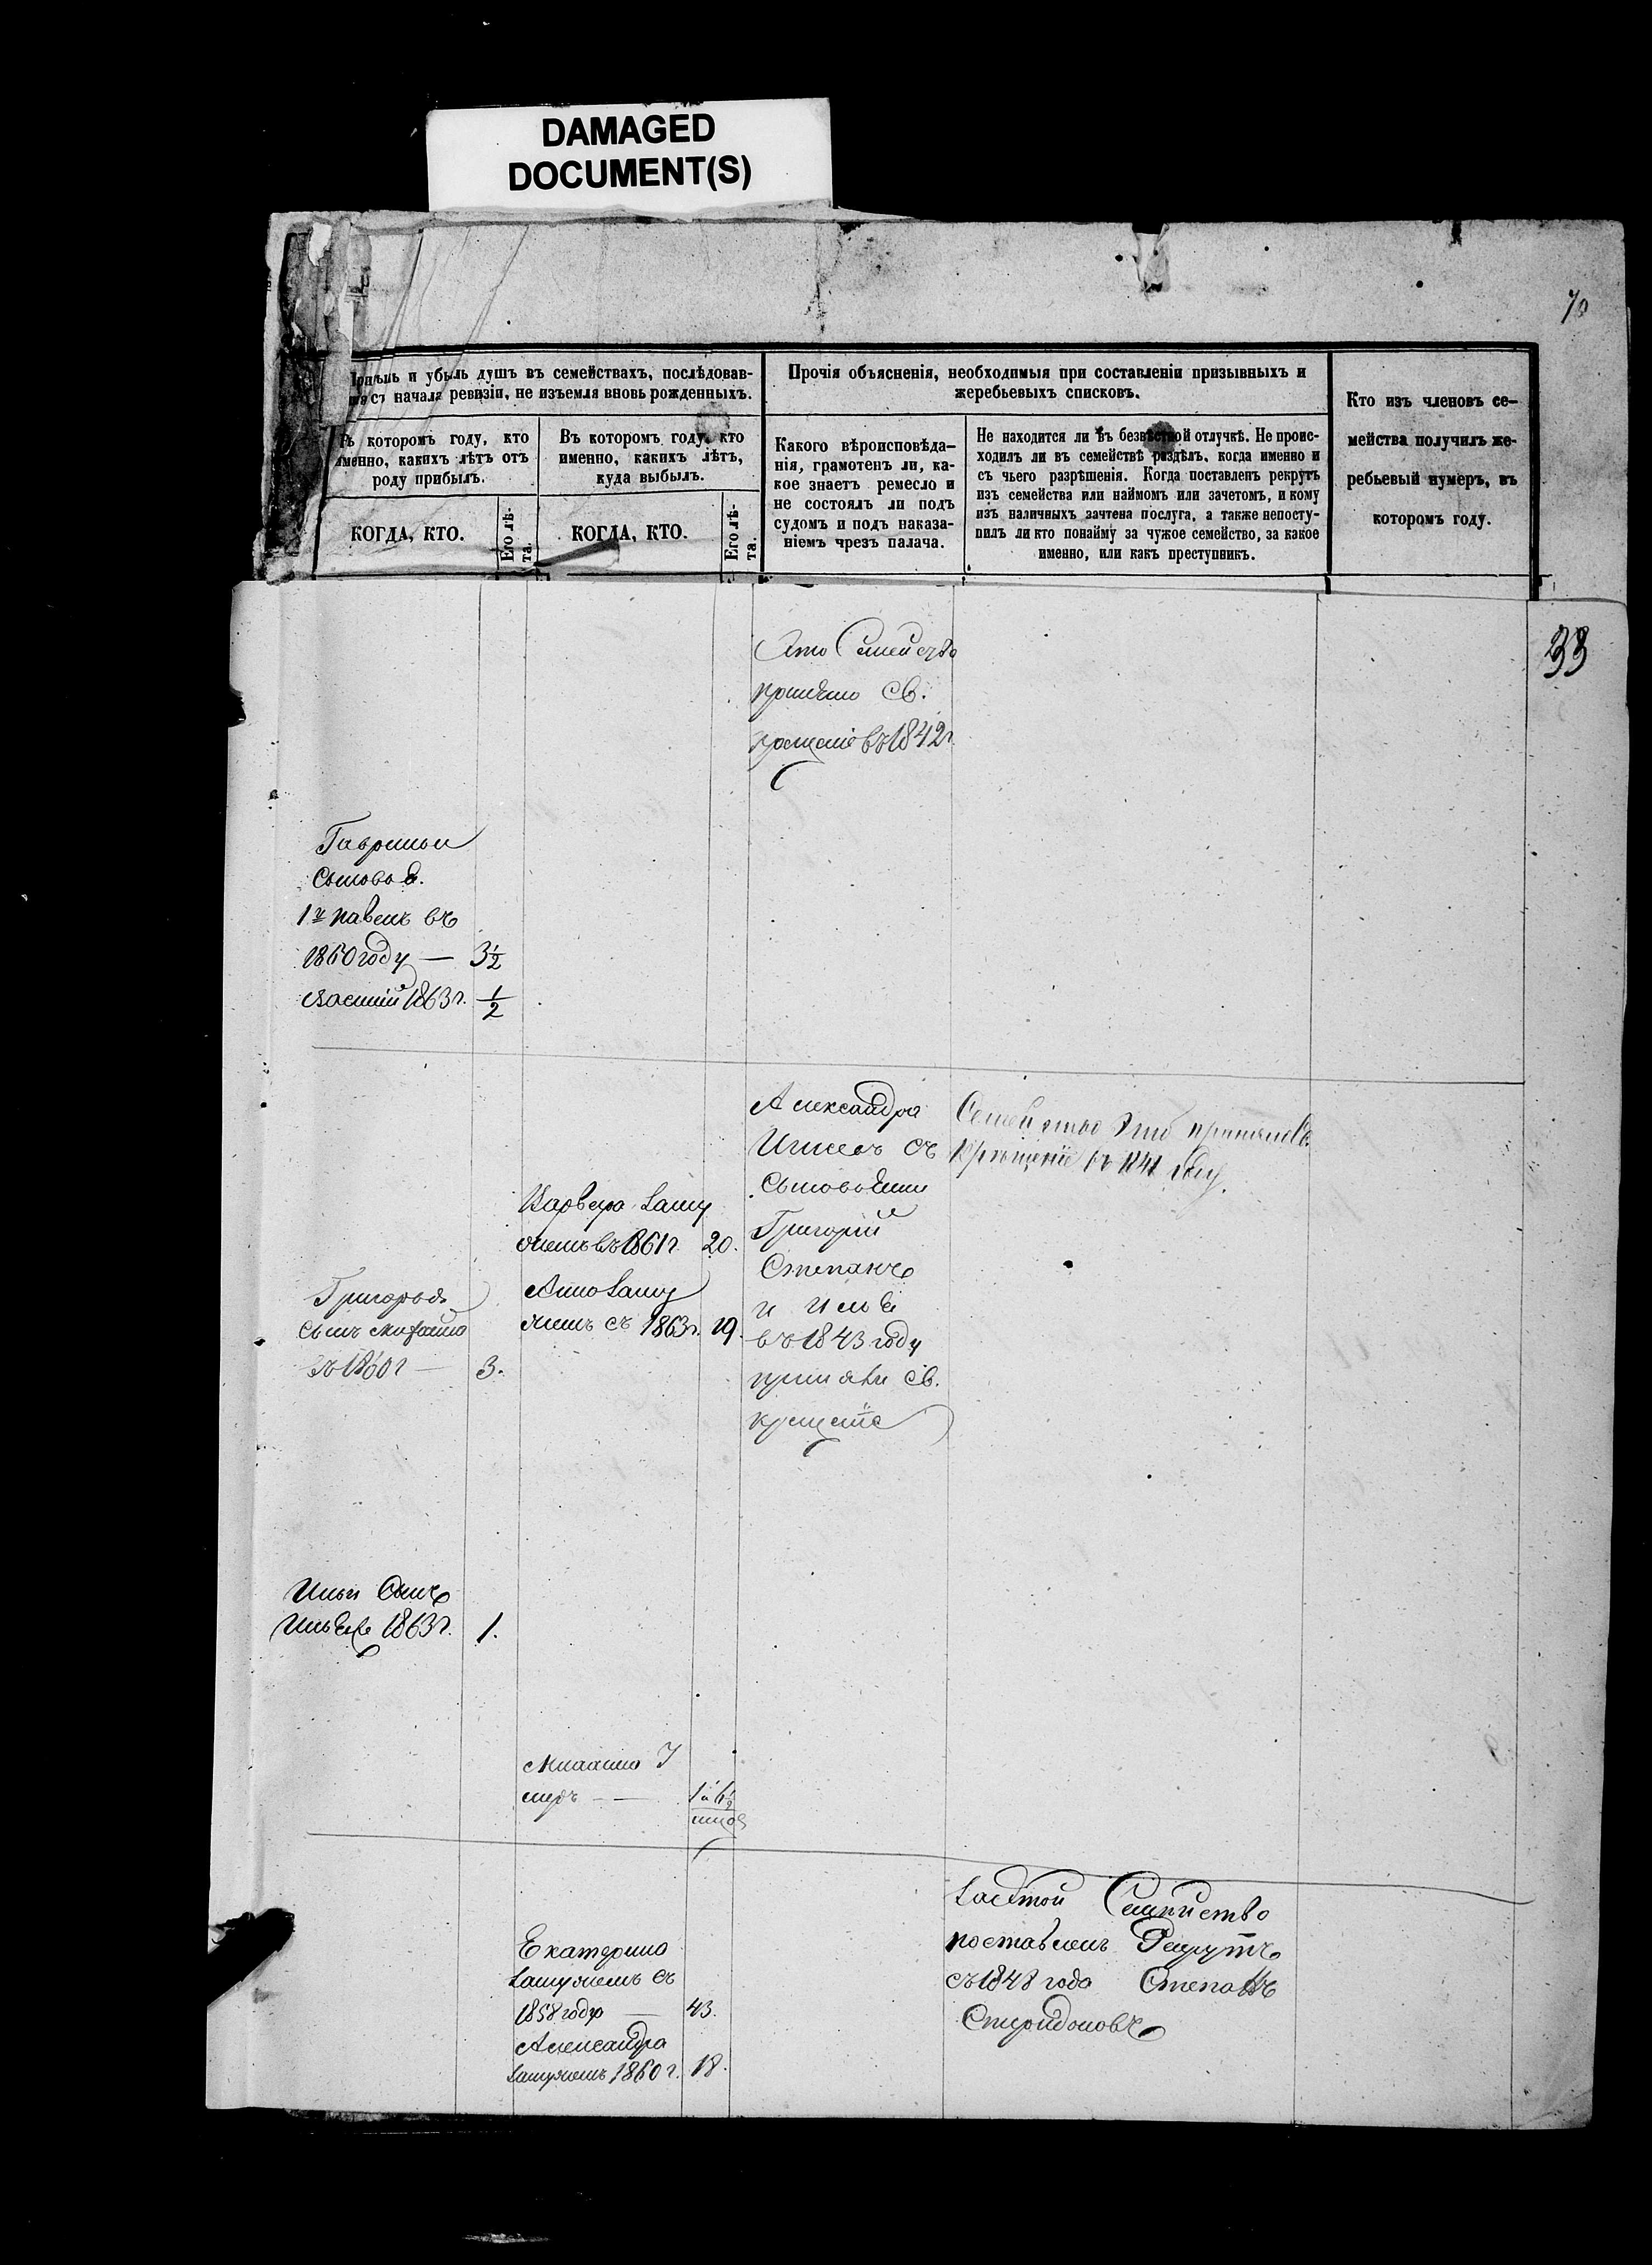 DAMAGED
DOCUMENT(S)
70
и убыль душъ въ семействахъ, послѣдовав-
съ начала ревизіи, не изъемля вновь рожденныхъ.
Въ которомъ году, кто
именно, какихъ лѣтъ отъ
роду прибылъ.
КОГДА, КТО.
Его лѣ-
та.
Въ которомъ году, кто
именно, какихъ лѣтъ,
куда выбылъ.
КОГДА, КТО.
Его лѣ-
та.
Прочія объясненія, необходимыя при составленіи призывныхъ и
жеребьевыхъ списковъ.
Какого вѣроисповѣда-
нія, грамотенъ ли, ка-
кое знаетъ ремесло и
не состоялъ ли подъ
судомъ и подъ наказа-
ніемъ чрезъ палача.
Не находится ли въ безвѣстной отлучкѣ. Не проис-
ходилъ ли въ семействѣ раздѣлъ, когда именно и
съ чьего разрѣшенія. Когда поставленъ рекрутъ
изъ семейства или наймомъ или зачетомъ, и кому
изъ наличныхъ зачтена послуга, а также непосту-
пилъ ли кто понайму за чужое семейство, за какое
именно, или какъ преступникъ.
Кто изъ членовъ се-
мейства получилъ же-
ребьевый нумеръ, въ
которомъ году.
33
Это Семейство
принято св.
крещеніе въ 1842 г.
Гаврилы
Сыновья
1й Павелъ въ
1860 году — 3½
1863 г. ½
Варвара Замужемъ въ 1861 г. 20.
Анна Заму
жемъ съ 1863 г. 19.
Григорья
Сынъ
въ 1860 г — 3.
Александра
съ
Сыновьями
Григорій
Степанъ
и Илья
въ 1843 году
приняли св.
крещеніе
Семейство Это приняло св.
Крещеніе въ 1841 году.
Ильи Сынъ
1863 г. 1.
меръ —
Екатерина
Замужемъ съ
1858 году — 43.
Александра
Замужемъ 1860 г. 18.
Семейство
поставленъ Рекрутъ
съ 1848 года Степанъ
Спиридоновъ